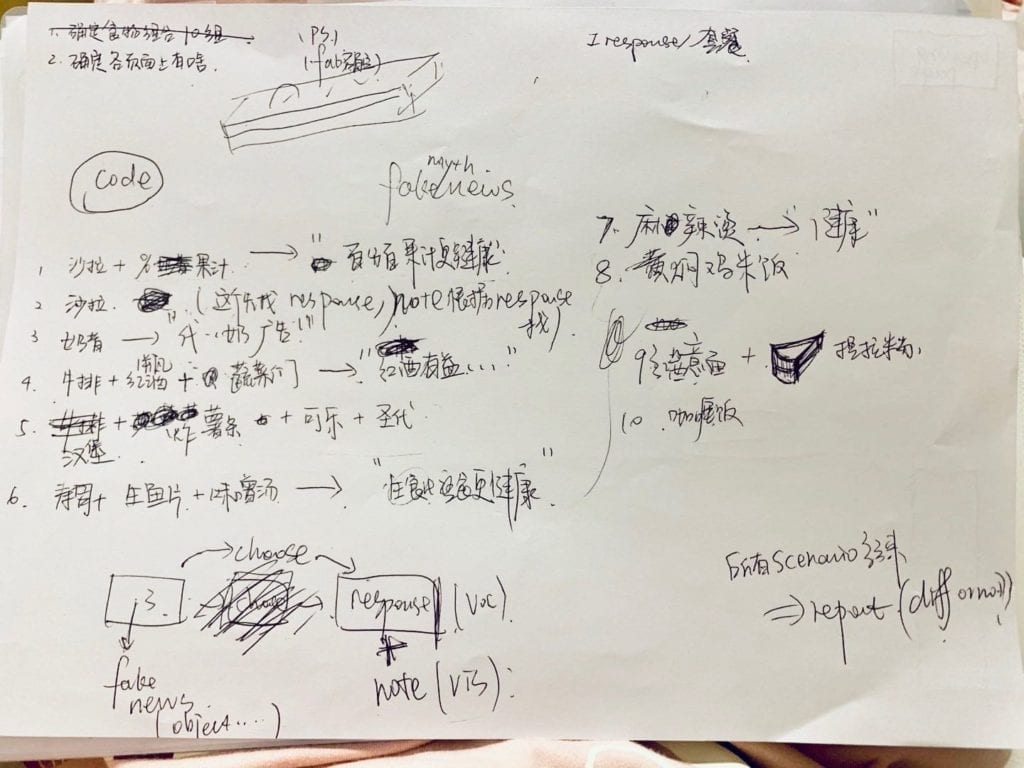 1. 确定食物组合10组
2. 确定各页面上有啥
(PS.)
(fab
1 response/套餐
code
myth
fake news
1 沙拉 + % 果汁 → "百分百果汁更健康"
2 沙拉. (这个先找 response,) note 根据 response
找)
3 → "代 奶广告!"
4. 牛排 + 红酒 + 蔬菜 → "红酒有益...."
5. 汉堡 + 炸薯条 + 可乐 + 圣代
6. 寿司 + 生鱼片 + 味噌汤 → " 更健康"
7. 麻辣烫 → "健康"
8. 黄焖鸡米饭
9. + 提拉米苏
10. 咖喱饭
choose
response (voc)
fake
news
(object....)
note (vis)
所有 Scenario 结束
⇒ report (diff or not)